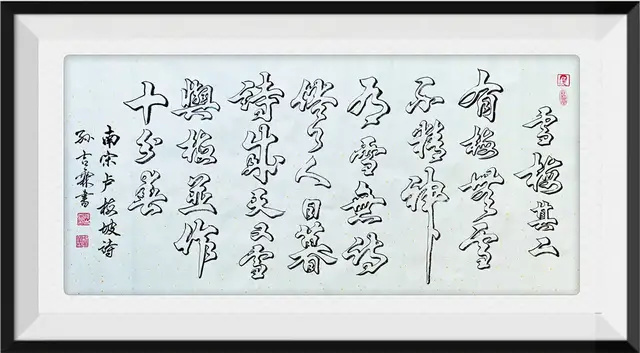 雪梅其二
有梅無雪
不精神
有雪無詩
俗了人日暮
詩成天又雪
與梅並作
十分春
南宋卢梅坡诗
孙吉霖書